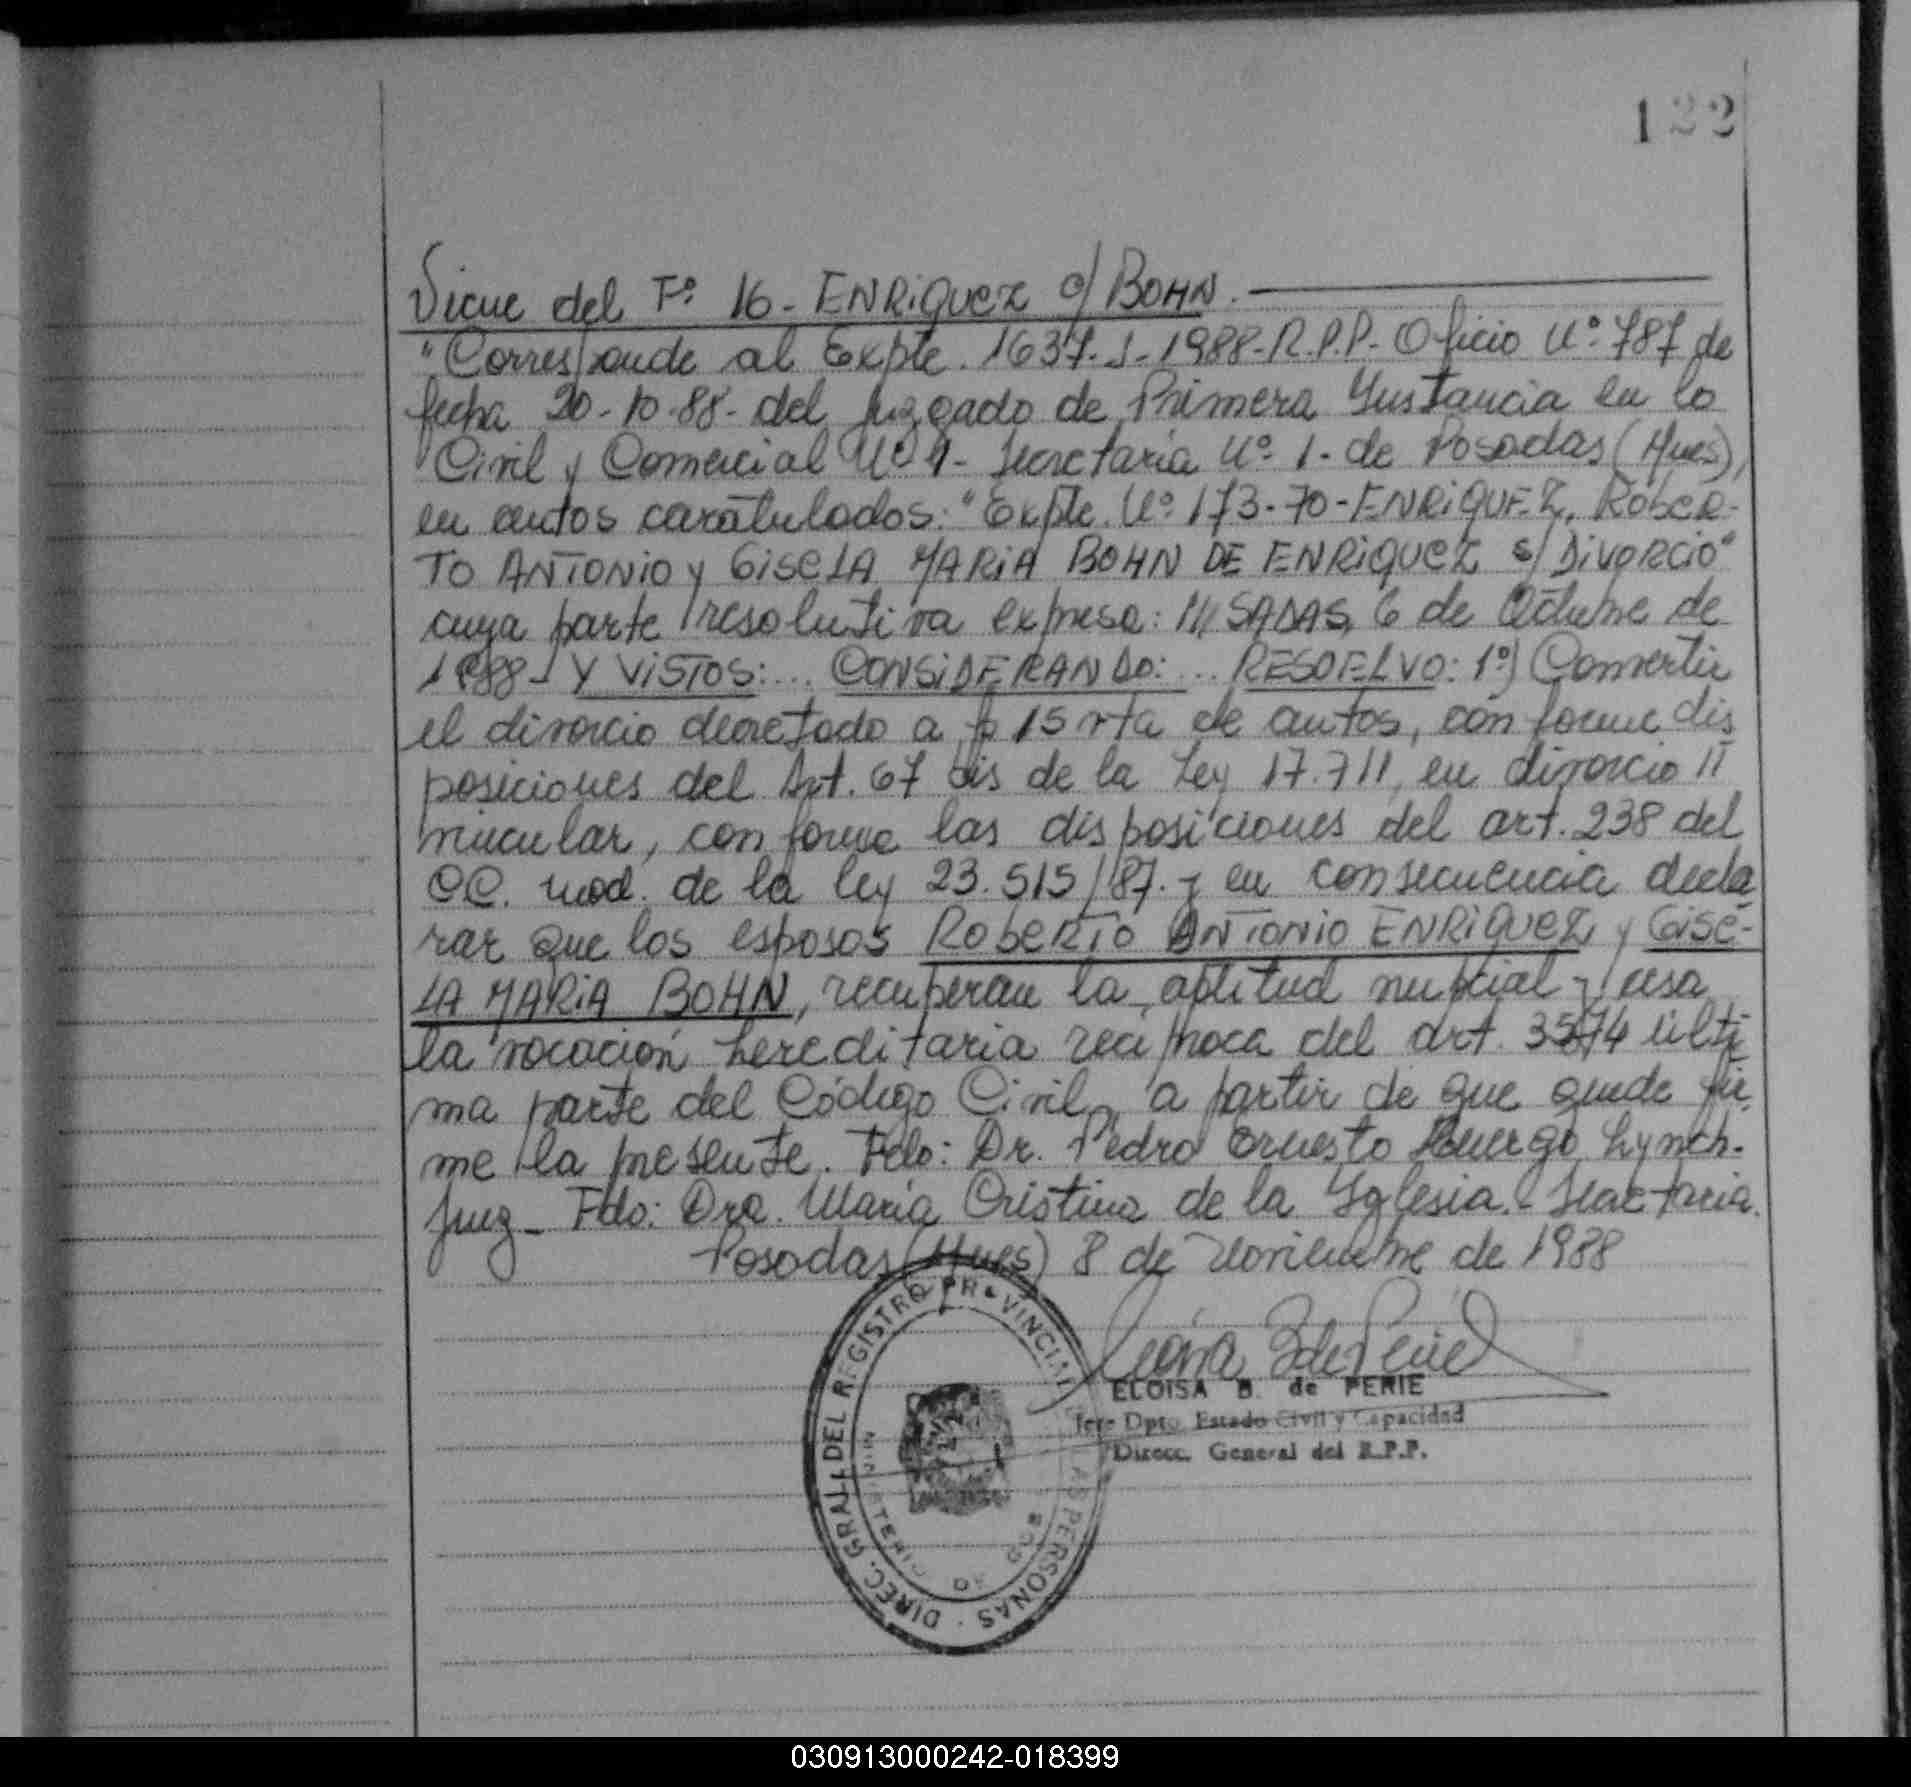 122
Sigue del Fº 16 - ENRIQUEZ c/ BOHN.
"Corresponde al Expte. 1637-J-1988-R.P.P. Oficio Nº 787 de
fecha 20-10-88- del Juzgado de Primera Instancia en lo
Civil y Comercial Nº 1- Secretaría Nº 1- de Posadas (Mnes),
en autos caratulados: "Expte. Nº 173-70-ENRIQUEZ, ROBER-
TO ANTONIO y GISELA MARIA BOHN DE ENRIQUEZ s/ DIVORCIO"
cuya parte resolutiva expresa: ///SADAS, 6 de Octubre de
1988- Y VISTOS:... CONSIDERANDO:... RESUELVO: 1º) Convertir
el divorcio decretado a fs 15 vta de autos, conforme dis
posiciones del Art. 67 bis de la Ley 17.711, en divorcio
vincular, conforme las disposiciones del art. 238 del
CC. mod. de la ley 23.515/87.- y en consecuencia decla
rar que los esposos ROBERTO ANTONIO ENRIQUEZ y GISE-
LA MARIA BOHN, recuperan la aptitud nupcial y cesa
la vocación hereditaria recíproca del art. 3574 últi
ma parte del Código Civil, a partir de que quede fir
me la presente. Fdo: Dr. Pedro Ernesto Huergo Lynch-
Juez- Fdo: Dra. María Cristina de la Iglesia - Secretaria.
Posadas (Mnes) 8 de Noviembre de 1988
DIREC. GRAL. DEL REGISTRO PROVINCIAL DE LAS PERSONAS
MINISTERIO DE GOB
ELOISA B. de PERIE
Jefe Dpto. Estado Civil y Capacidad
Direcc. General del R.P.P.
030913000242-018399